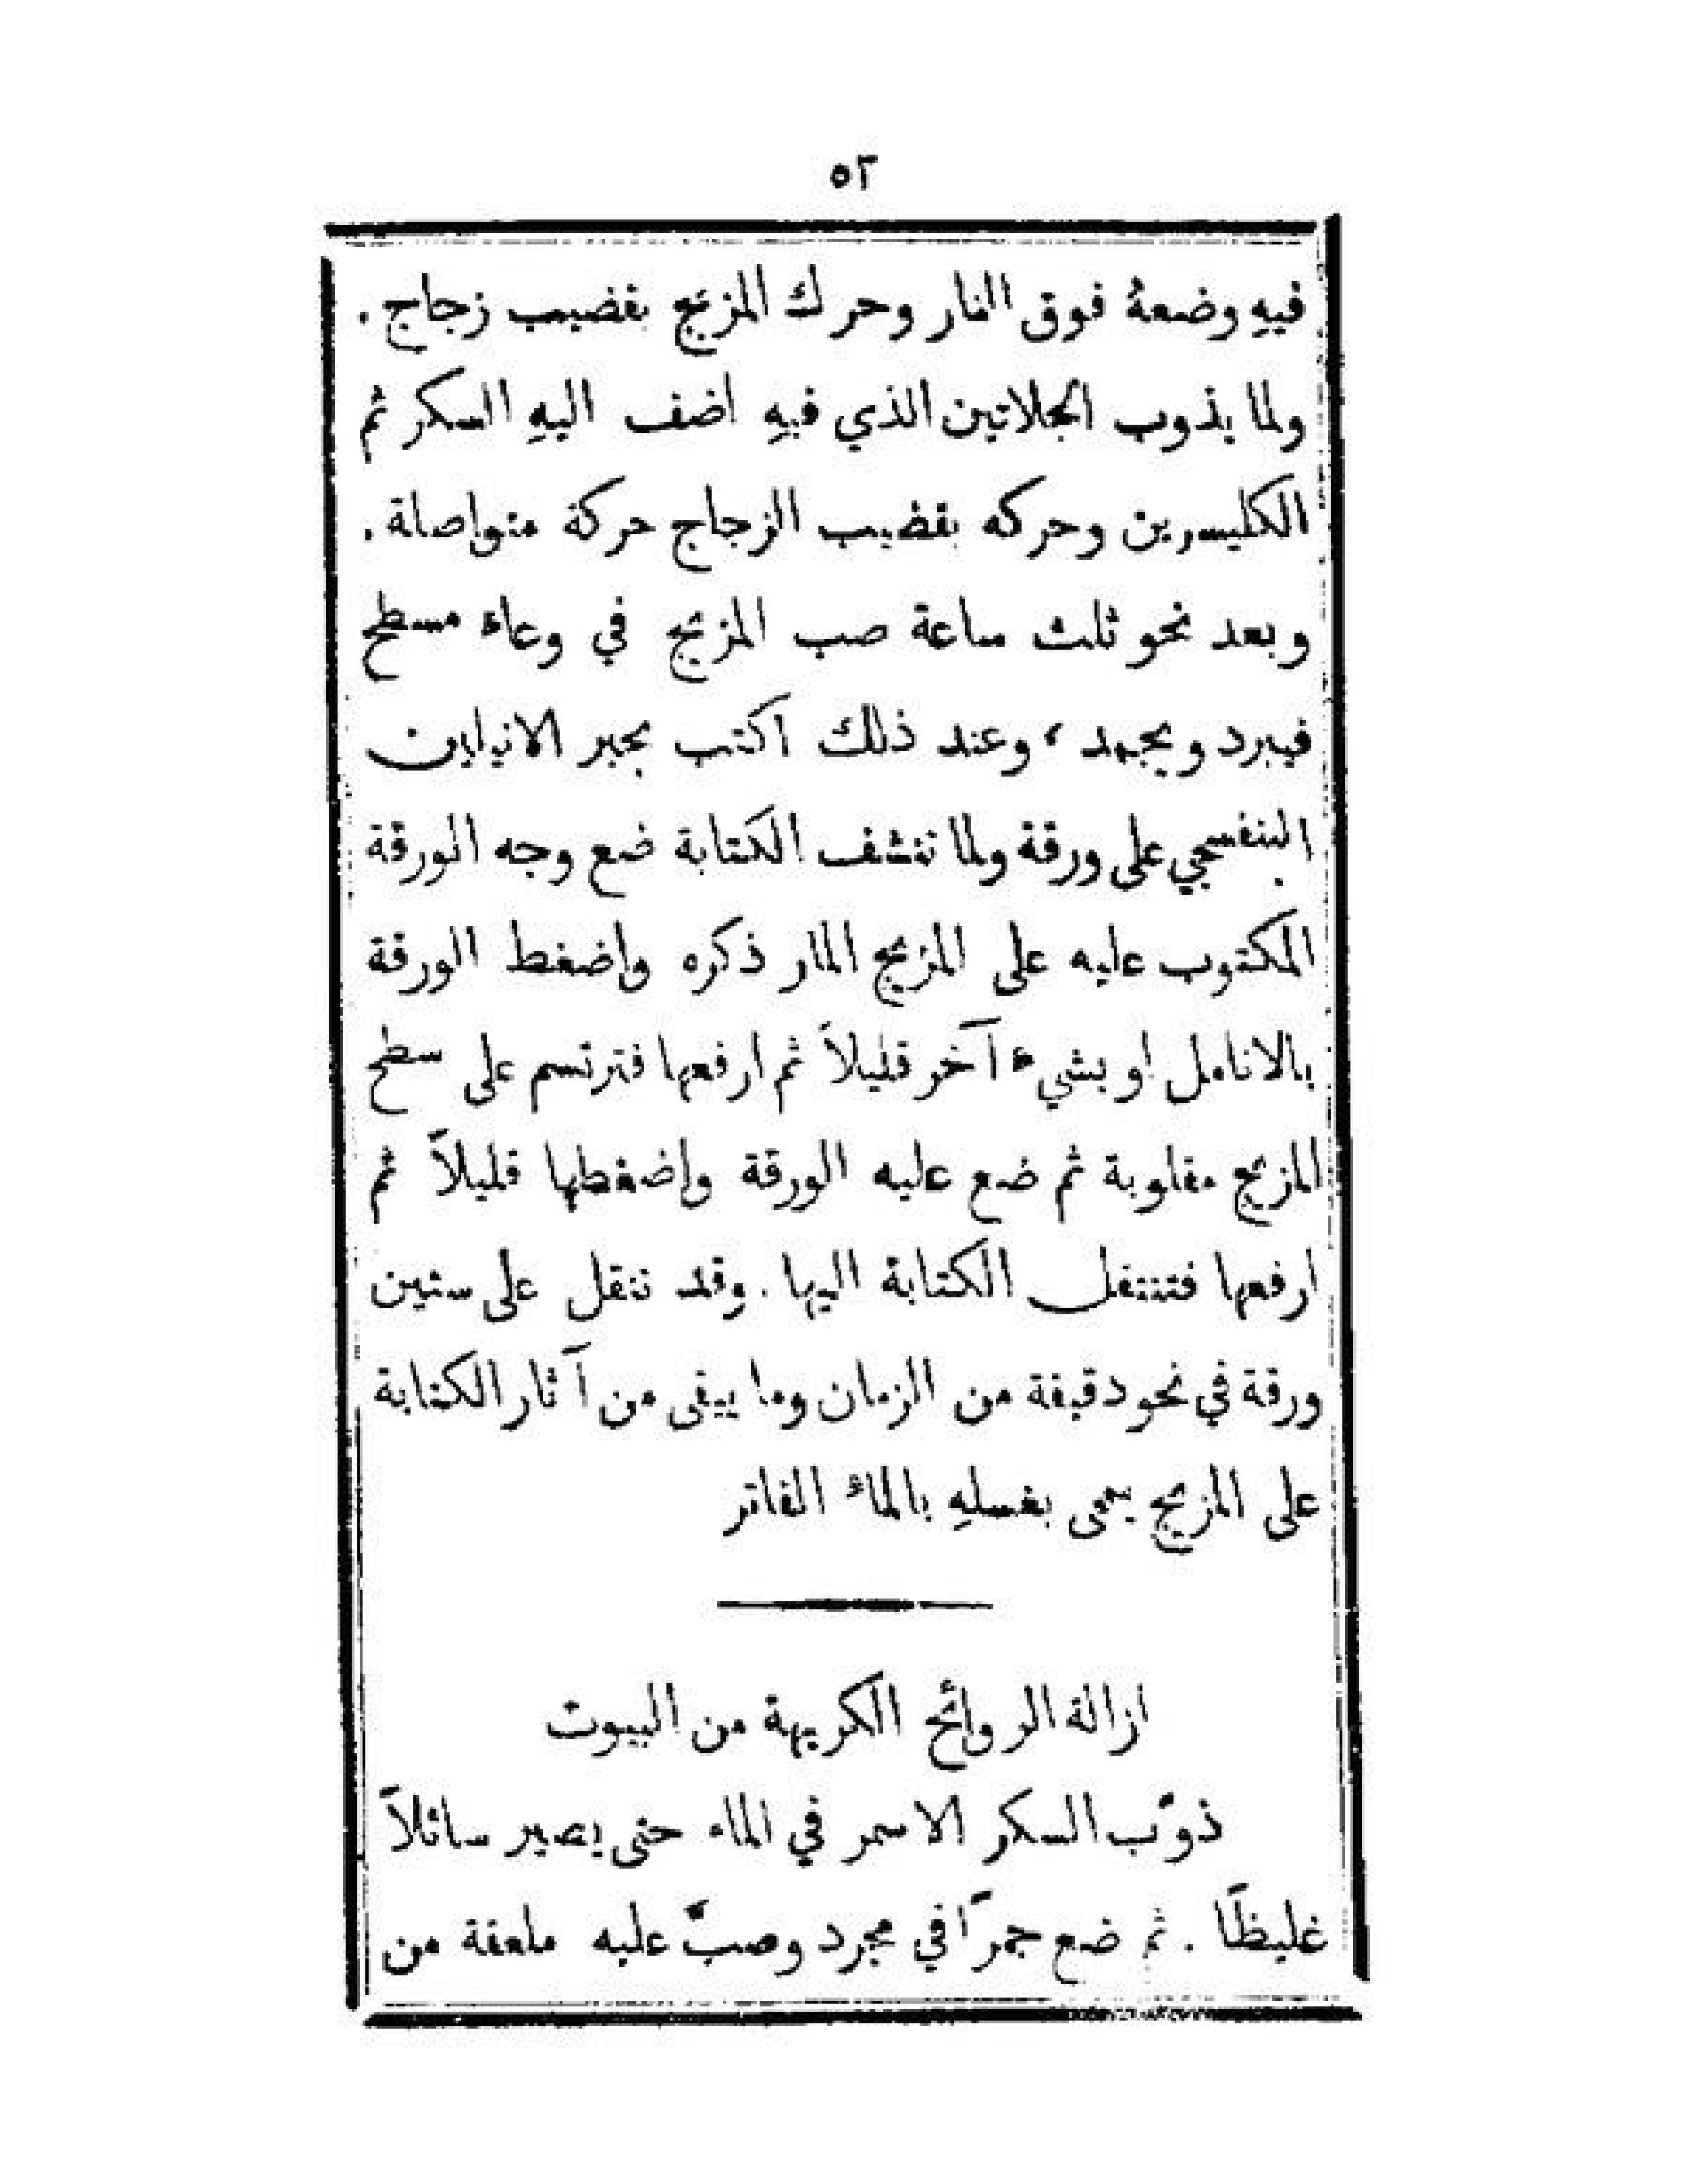 ٥٢
فيهِ وضعهُ فوق النار وحرك المزيج بقضيب زجاج .
ولما يذوب الجلاتين الذي فيهِ اضف اليهِ السكر ثم
الكليسرين وحركه بقضيب الزجاج حركة متواصلة .
وبعد نحو ثلث ساعة صب المزيج في وعاء مسطح
فيبرد ويجمد ، وعند ذلك اكتب بحبر الانيلين
البنفسجي على ورقة ولما تنشف الكتابة ضع وجه الورقة
المكتوب عليه على المزيج المار ذكره واضغط الورقة
بالانامل او بشيء آخر قليلاً ثم ارفعها فترتسم على سطح
المزيج مقلوبة ثم ضع عليه الورقة واضغطها قليلاً ثم
ارفعها فتنتقل الكتابة اليها . وقد تنقل على ستين
ورقة في نحو دقيقة من الزمان وما يبقى من آثار الكتابة
على المزيج يمحى بغسلهِ بالماء الفاتر
ازالة الروائح الكريهة من البيوت
ذوّب السكر الاسمر في الماء حتى يصير سائلاً
غليظًا . ثم ضع جمرًا في مجرد وصبّ عليه ملعقة من